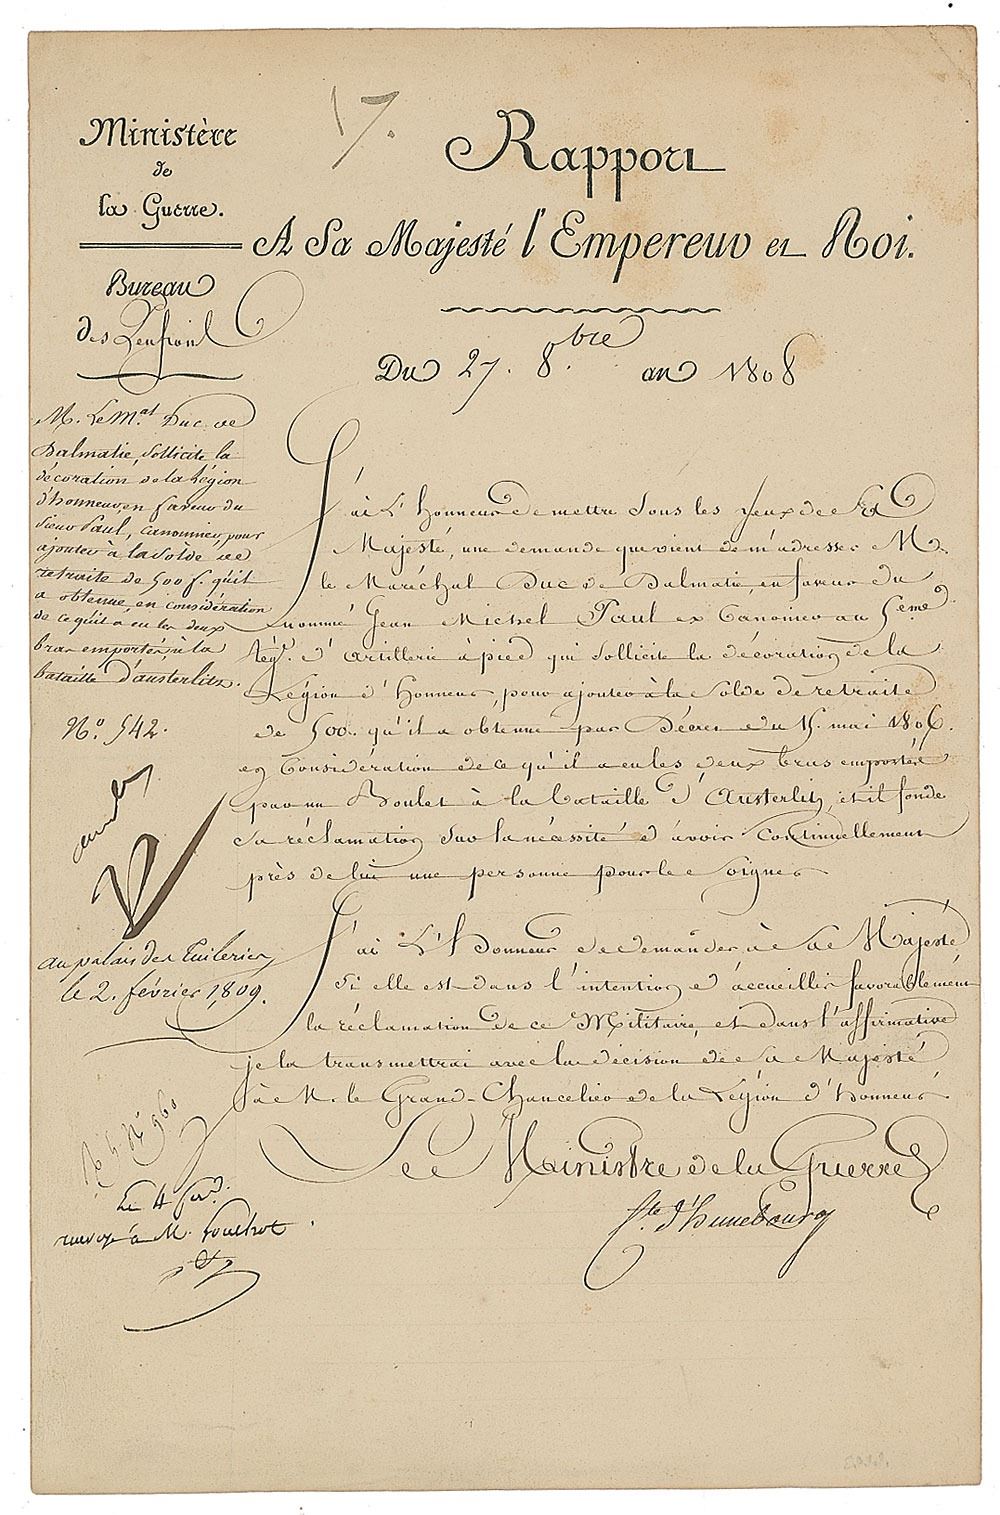 17.
Ministère
de
la Guerre.
Bureau
des Pensions
Rapport
A Sa Majesté l'Empereur et Roi.
Du 27. 8.bre an 1808
M. Le M.al Duc de
Dalmatie, sollicite la
décoration de la Légion
d'honneur, en faveur du
Sieur Paul, Canonnier, pour
ajouter à la Solde de
retraite de 500 f. qu'il
a obtenue, en considération
de ce qu'il a eu les deux
bras emportés, à la
bataille d'austerlitz.
N.o 542.
accordé
N
au palais des Tuileries
le 2. février 1809.
Le 4 fev.
renvoyé à M.
J'ai L'Honneur de mettre sous les yeux de Sa
Majesté, une demande que vient de m'adresser M.
le Maréchal Duc de Dalmatie, en faveur du
nommé Jean Michel Paul ex Canonier au 5.eme
Rég.t d'artillerie à pied qui sollicite la décoration de la
Légion d'Honneur, pour ajouter à la Solde de retraite
de 500. qu'il a obtenue par Décret du 15. mai 1806.
en Considération de ce qu'il a eu les deux bras emportés
par un Boulet à la bataille d'Austerlitz, et il fonde
sa réclamation sur la nécessité d'avoir Continuellement
près de lui une personne pour le Soigner
J'ai L'Honneur de demander à Sa Majesté
Si elle est dans l'intention d'accueillir favorablement
la réclamation de ce Militaire, et dans l'affirmative
je la transmettrai avec la décision de Sa Majesté
à M. le Grand-Chancelier de la Légion d'honneur
Le Ministre de la Guerre
C.te d'hunebourg